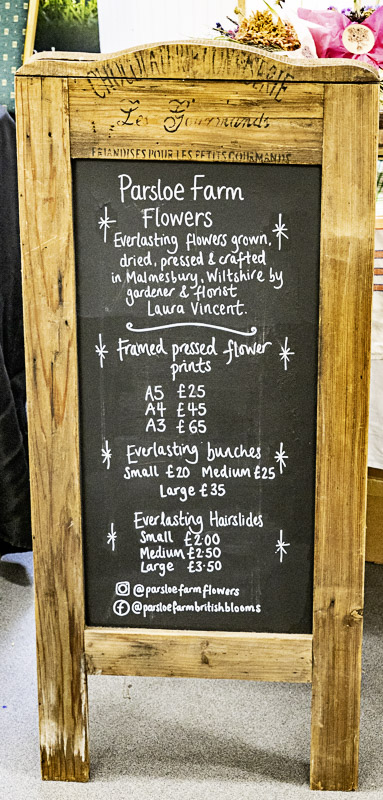 Les Gourmands
FRIANDISES POUR LES PETITS GOURMANDS
Parsloe Farm
Flowers
Everlasting flowers grown,
dried, pressed & crafted
in Malmesbury, Wiltshire by
gardener & florist
Laura Vincent.
Framed pressed flower
prints
A5 £25
A4 £45
A3 £65
Everlasting bunches
Small £20 Medium £25
Large £35
Everlasting Hairslides
Small £2.00
Medium £2.50
Large £3.50
@parsloefarmflowers
@parsloefarmbritishblooms